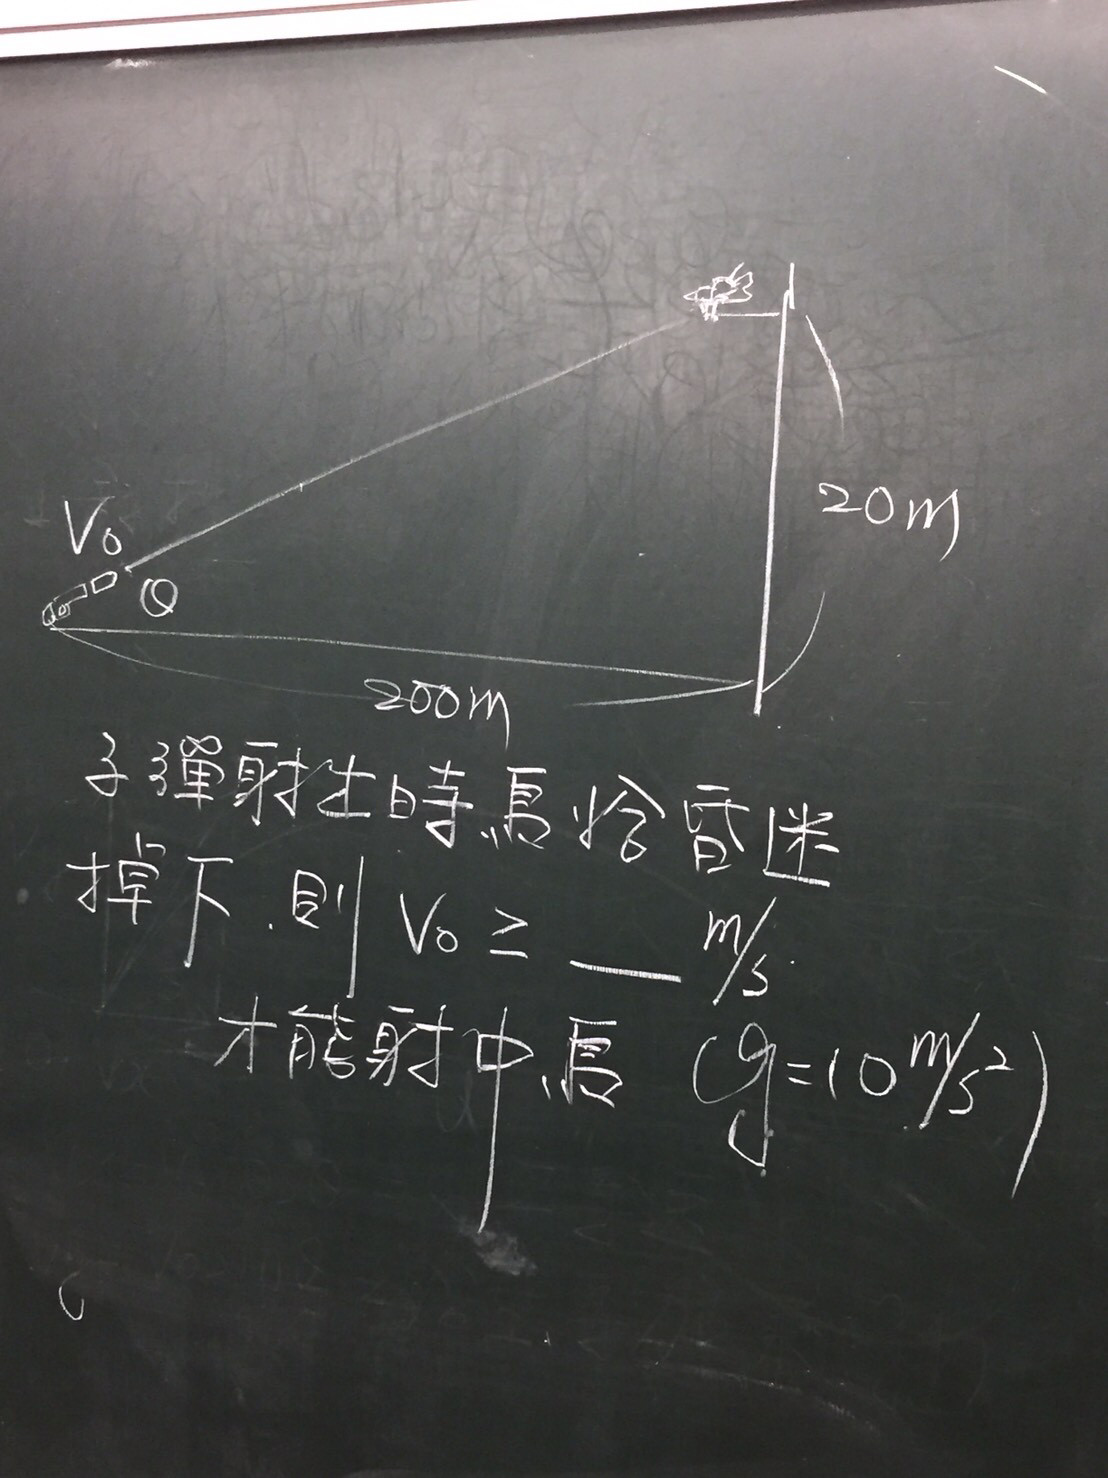 20m
V₀
θ
200m
子彈射出時鳥恰昏迷
掉下.則 V₀ ≥ ___ m/s.
才能射中鳥 (g=10 m/s²)